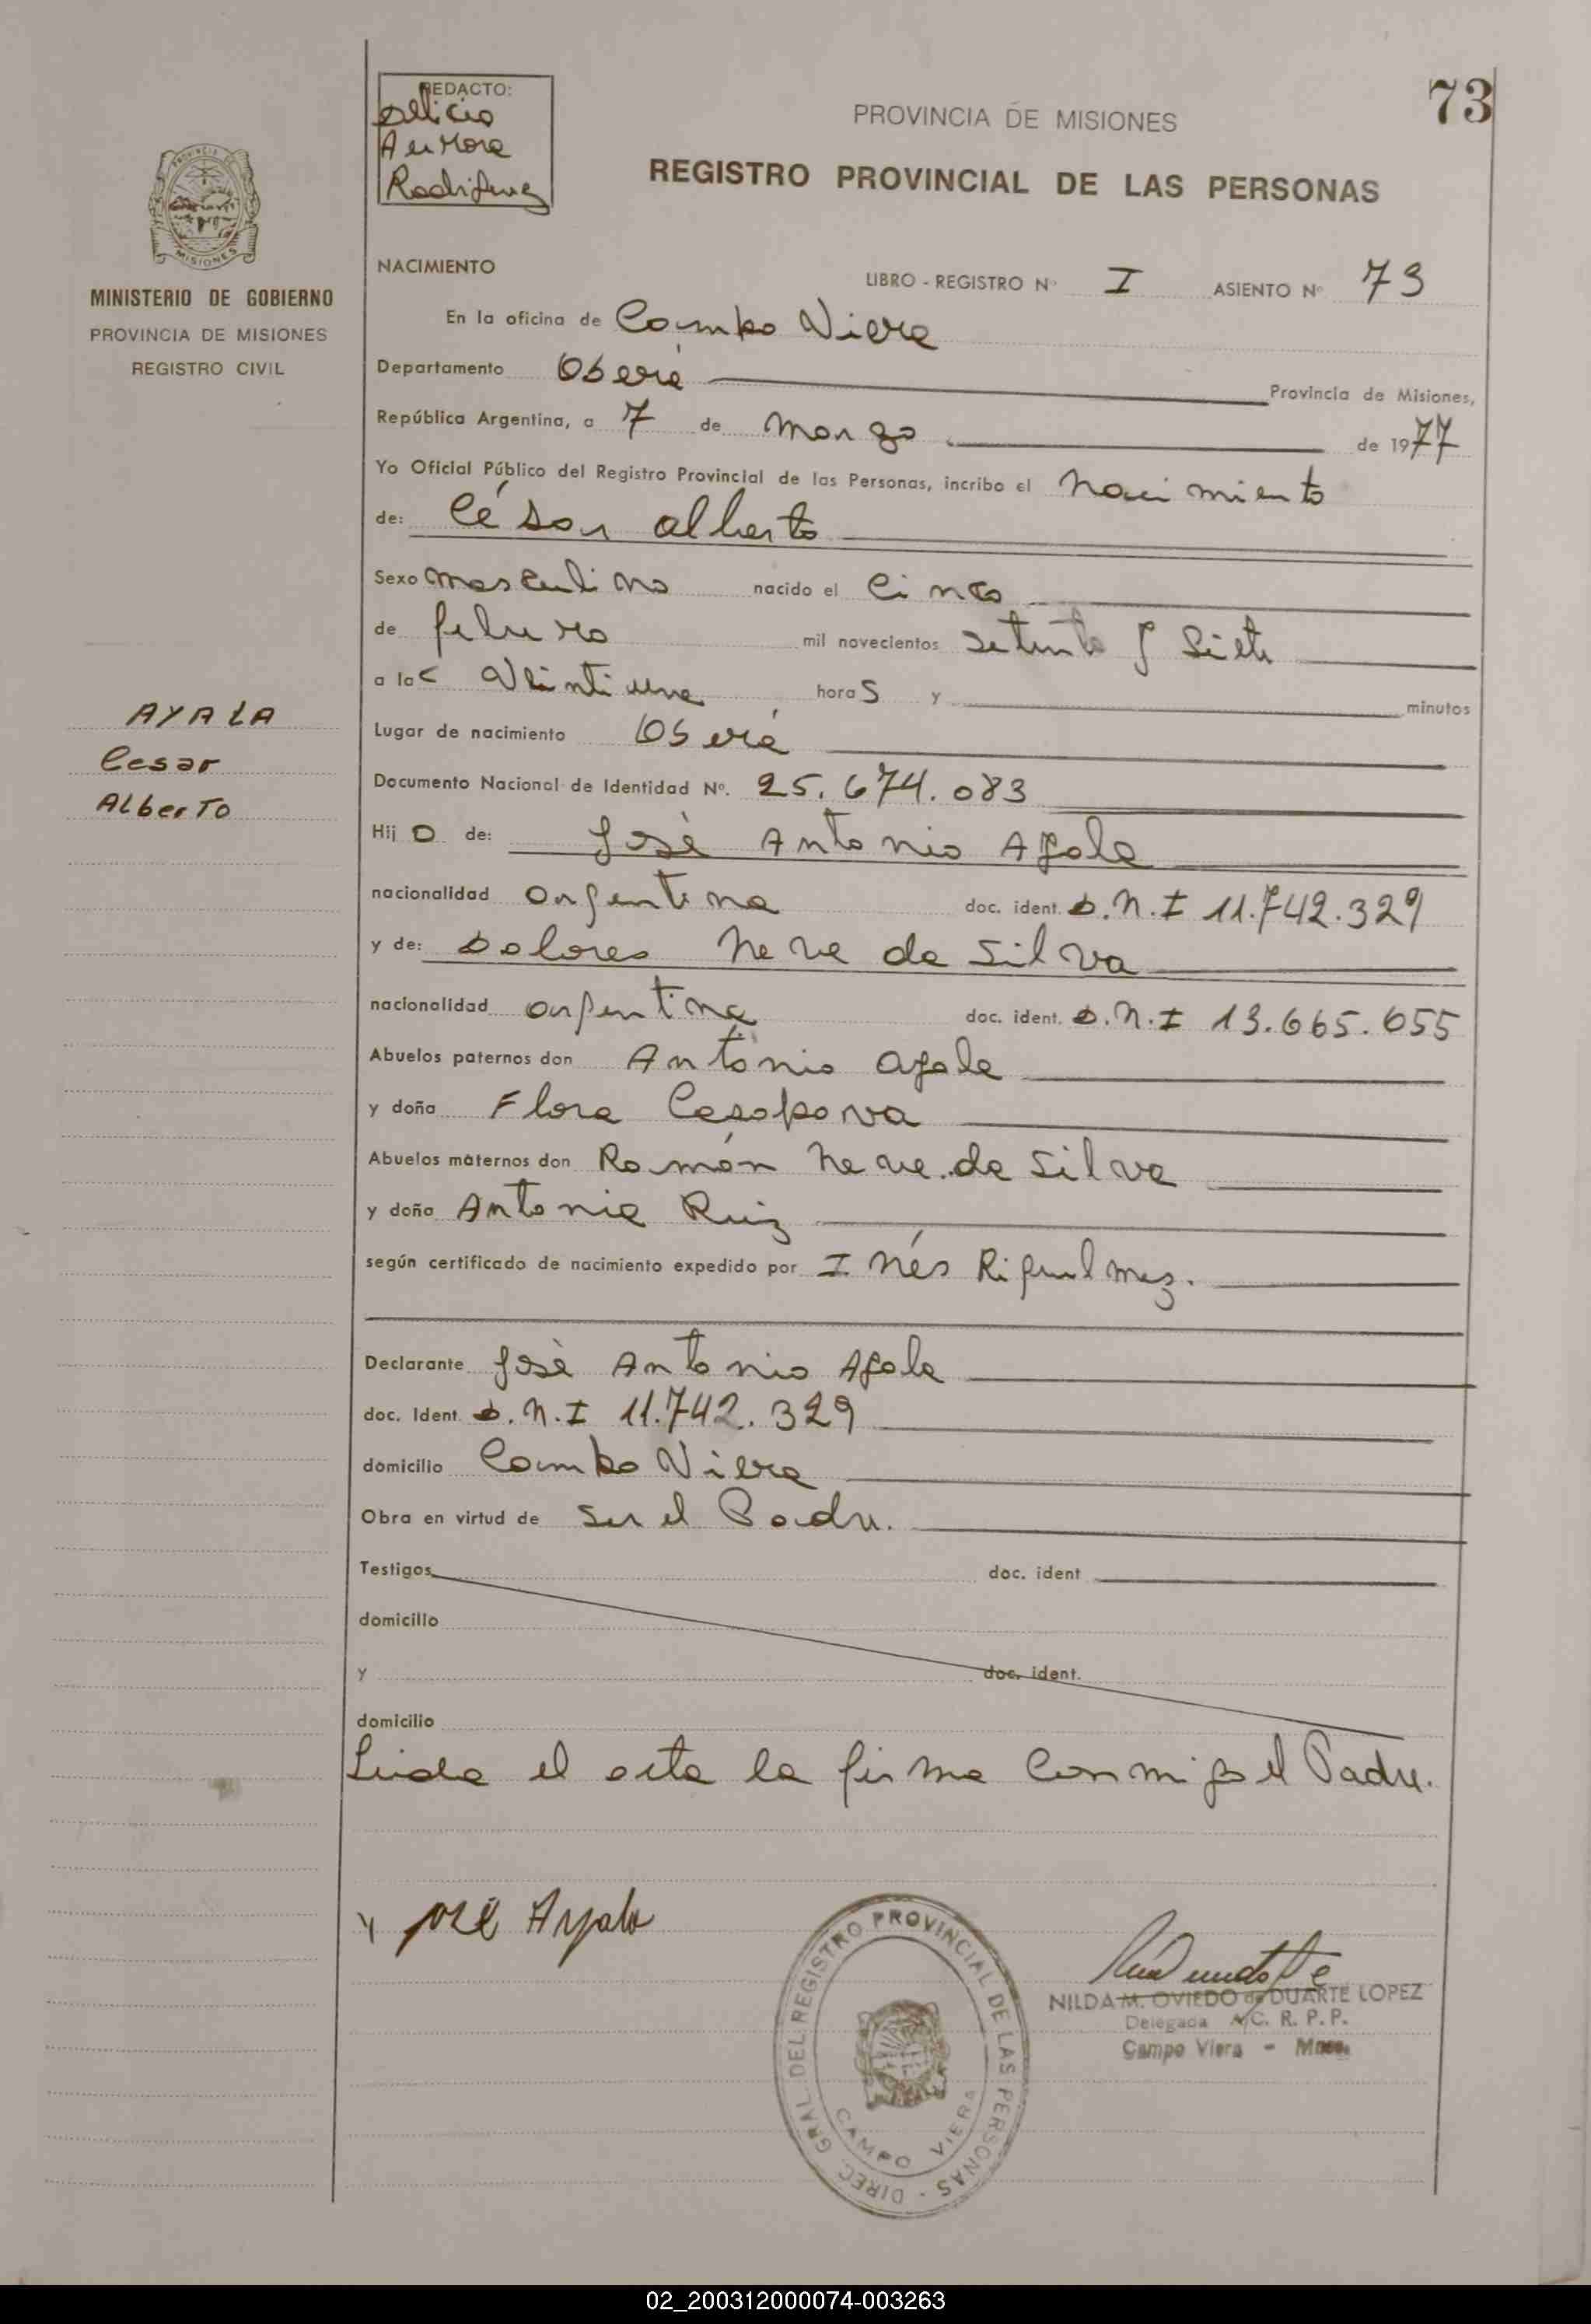 73
REDACTO:
Alicia
Aurora
Rodriguez
PROVINCIA DE MISIONES
REGISTRO PROVINCIAL DE LAS PERSONAS
MINISTERIO DE GOBIERNO
PROVINCIA DE MISIONES
REGISTRO CIVIL
AYALA
Cesar
Alberto
NACIMIENTO
LIBRO - REGISTRO Nº I ASIENTO Nº 73
En la oficina de Campo Viera
Departamento Oberá Provincia de Misiones,
República Argentina, a 7 de marzo de 1977
Yo Oficial Público del Registro Provincial de las Personas, incribo el nacimiento
de: César Alberto
Sexo masculino nacido el cinco
de febrero mil novecientos setenta y siete
a las veintiuna horas y minutos
Lugar de nacimiento Oberá
Documento Nacional de Identidad Nº. 25.674.083
Hijo de: José Antonio Ayala
nacionalidad argentina doc. ident. D.N.I 11.742.329
y de: Dolores Neve da Silva
nacionalidad argentina doc. ident. D.N.I 13.665.655
Abuelos paternos don Antonio Ayala
y doña Flora
Abuelos maternos don Ramón Neve da Silva
y doña Antonia Ruiz
según certificado de nacimiento expedido por Inés
Declarante José Antonio Ayala
doc. Ident. D.N.I 11.742.329
domicilio Campo Viera
Obra en virtud de ser el Padre.
Testigos doc. ident
domicilio
y doc. ident.
domicilio
Leida el acta la firma conmigo el Padre.
José Ayala
DIREC. GRAL. DEL REGISTRO PROVINCIAL DE LAS PERSONAS -
CAMPO VIERA
NILDA M. OVIEDO de DUARTE LOPEZ
Delegada A/C. R. P. P.
Campo Viera - Mnes.
02_200312000074-003263